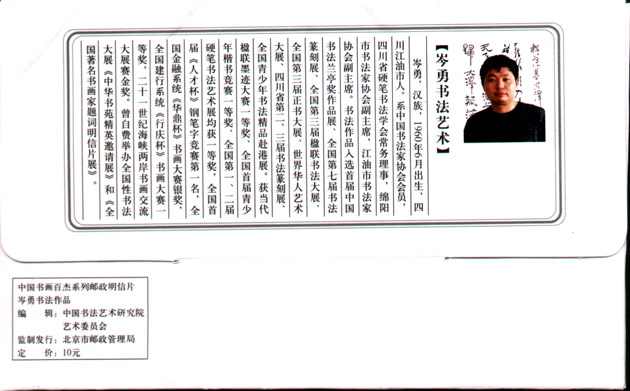 【岑勇书法艺术】
岑勇，汉族，1960年6月出生，四
川江油市人。系中国书法家协会会员、
四川省硬笔书法学会常务理事，绵阳
市书法家协会副主席，江油市书法家
协会副主席。书法作品入选首届中国
书法兰亭奖作品展、全国第七届书法
篆刻展、全国第三届楹联书法大展、
全国第三届正书大展、世界华人艺术
大展、四川省第二、三届书法篆刻展、
全国青少年书法精品赴港展。获当代
楹联墨迹大赛一等奖、全国首届青少
年楷书竞赛一等奖、全国第一、二届
硬笔书法艺术展均获一等奖，全国首
届《人才杯》钢笔字竞赛第一名，全
国金融系统《华鼎杯》书画大赛银奖，
全国建行系统《行庆杯》书画大赛一
等奖，二十一世纪海峡两岸书画交流
大展赛金奖。曾自费举办全国性书法
大展《中华书苑精英邀请展》和《全
国著名书画家题词明信片展》。
中国书画百杰系列邮政明信片
岑勇书法作品
编　　辑：中国书法艺术研究院
艺术委员会
监制发行：北京市邮政管理局
定　　价：10元